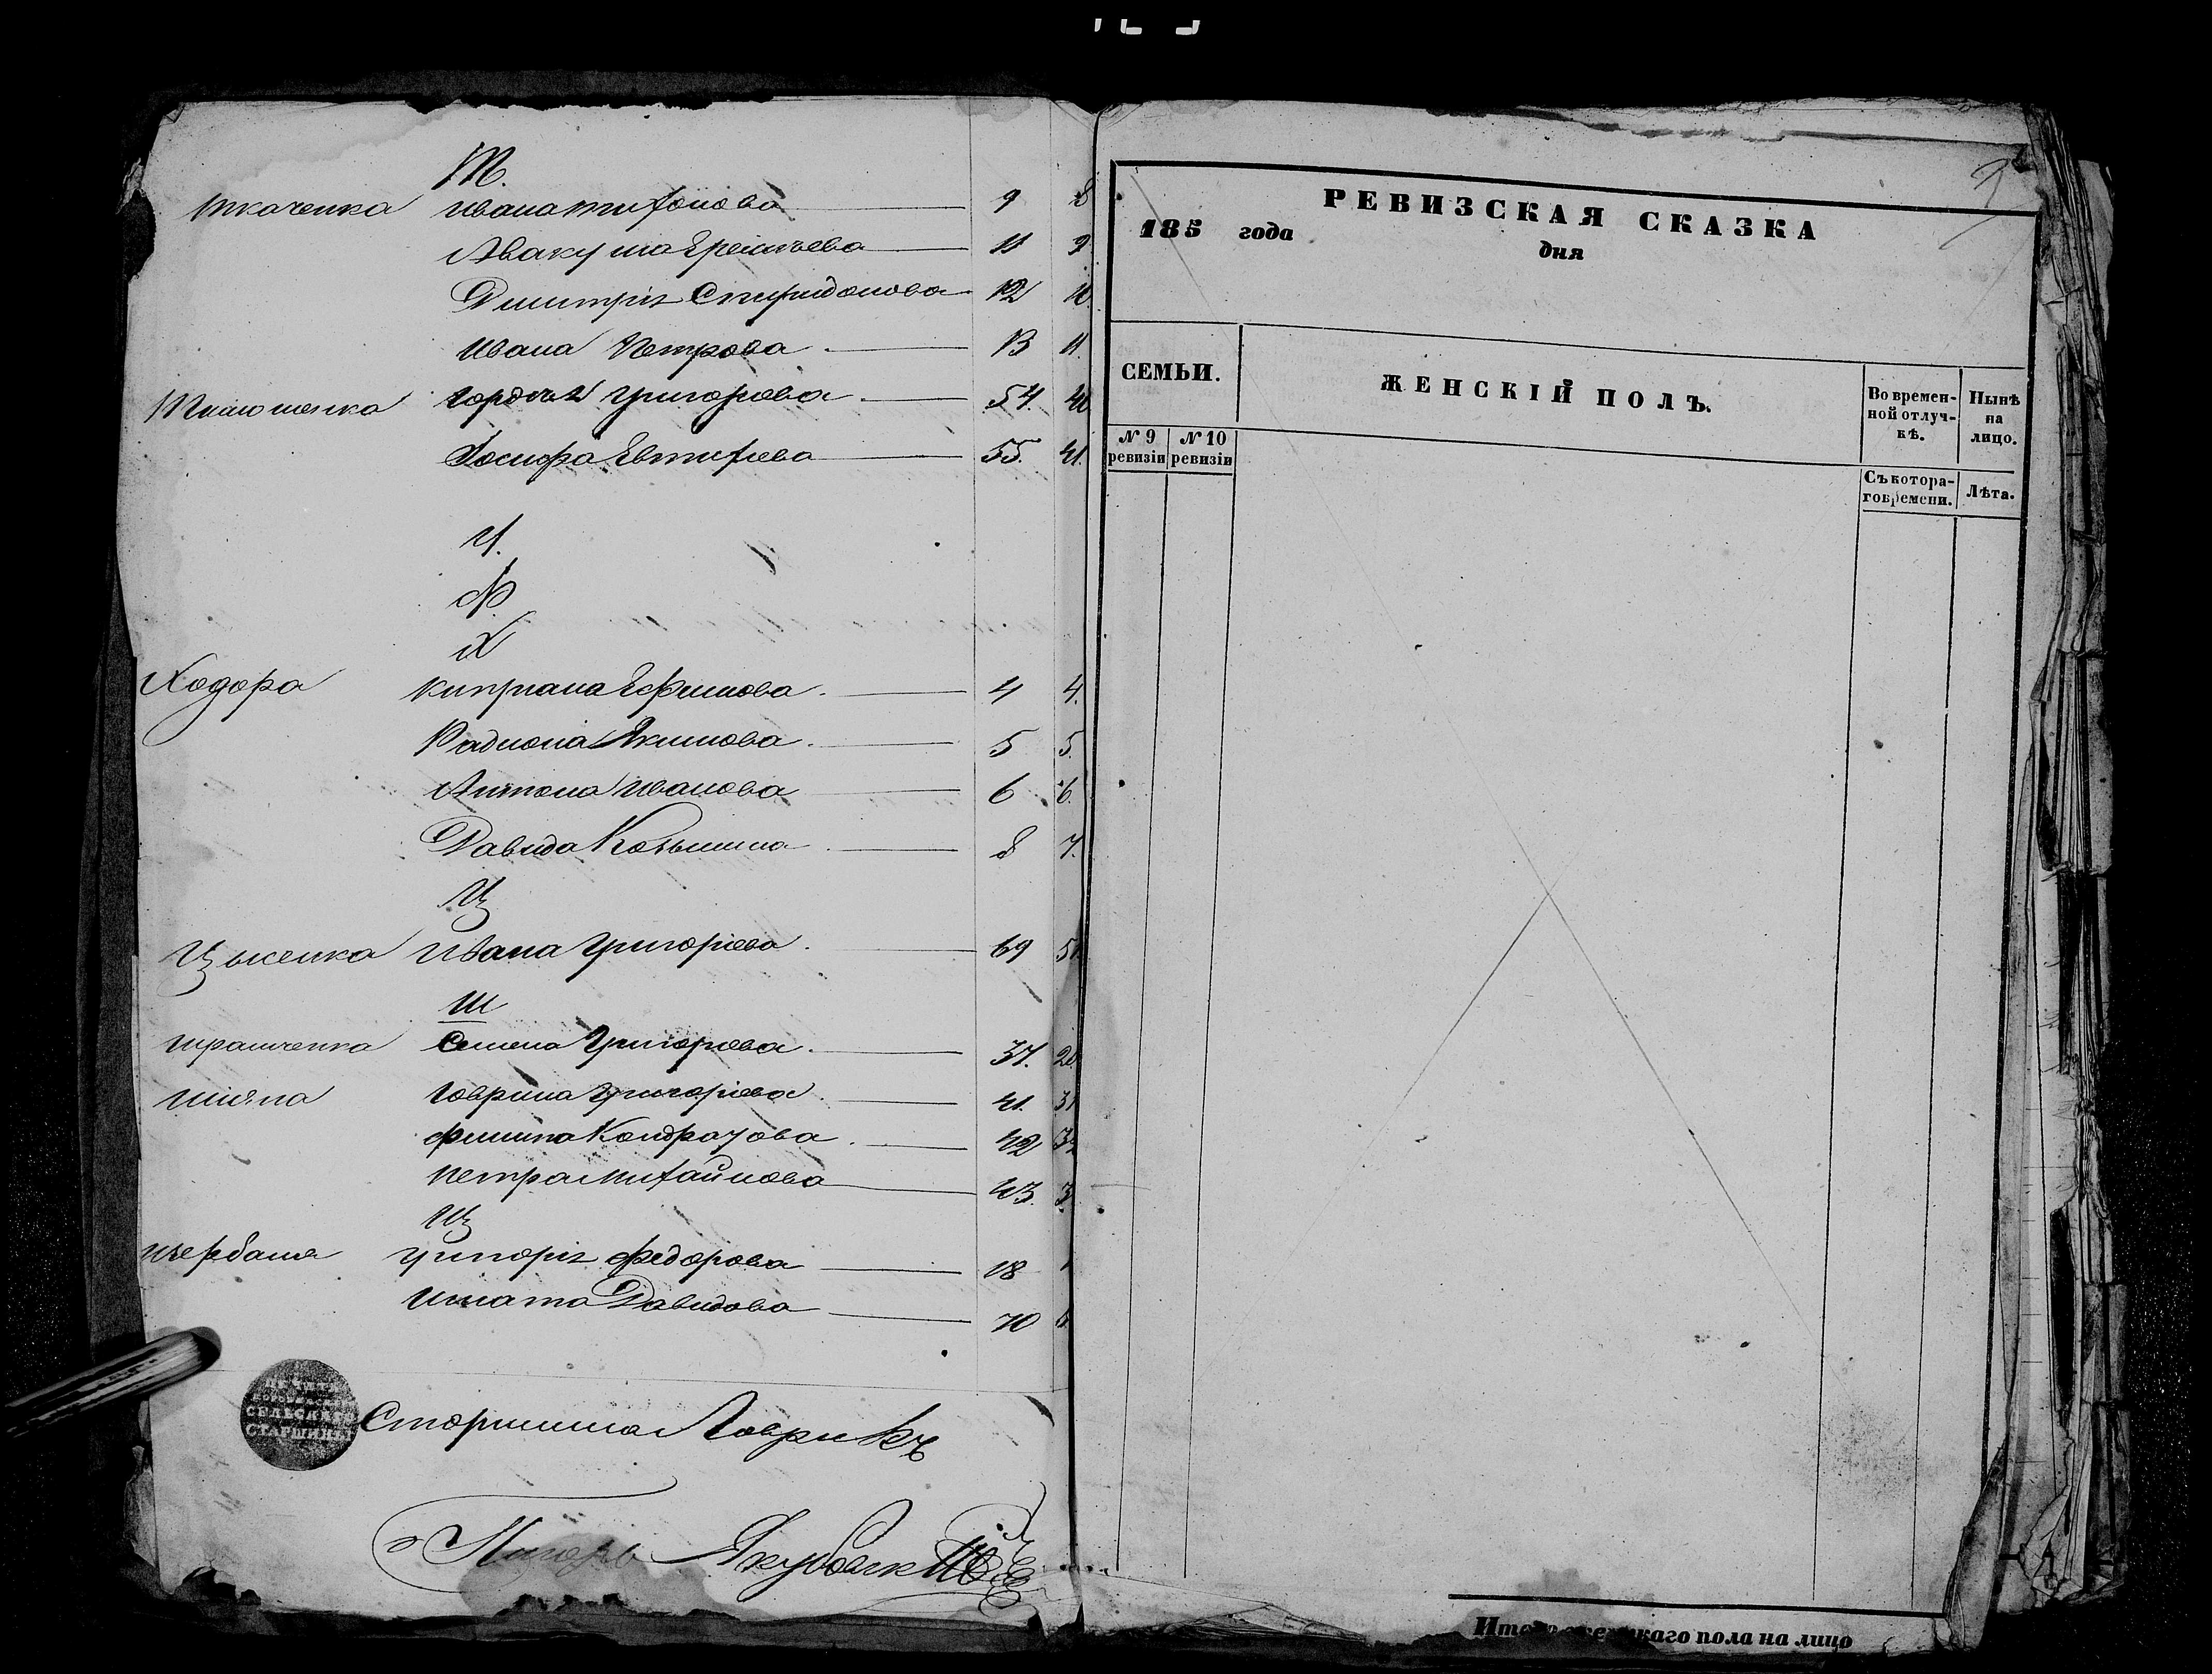 Т.
Ткаченка Ивана Тифонова 9 8
Авакума Еремѣева 11 9
Дмитрія Спиридонова 12 10.
Ивана Петрова 13 11.
Тимошенка Гордѣя Григорова 54. 40
Іосифа Евтифева 55. 41.
У.
Ф.
Х
Ходора Киприана Ефимова 4 4.
Радиона Якимова 5 5.
Антона Иванова 6 6.
Давида Козьмина 8 7.
Ц
Цыкенка Ивана Григоріева 69 51.
Ш
Шрамченка Семена Григорова 37. 28
Шияна Гаврила Григоріева 41. 31
Филипа Кондратова 42 32
Петра Михайлова 43. 3
Щ
Щербаня Григорія Федорова 18
Игната Давидова 70
ПЕЧАТЬ
СЕЛЬСКАГО
СТАРШИНЫ
Старшина Гаврикъ
Писарь Якубовскій
РЕВИЗСКАЯ СКАЗКА
185 года дня
СЕМЬИ.
ЖЕНСКІЙ ПОЛЪ.
Во времен-
ной отлуч-
кѣ.
Нынѣ
на
лицо.
№ 9
ревизіи
№ 10
ревизіи
Съ котора-
го времени.
Лѣта.
Итого женскаго пола на лицо